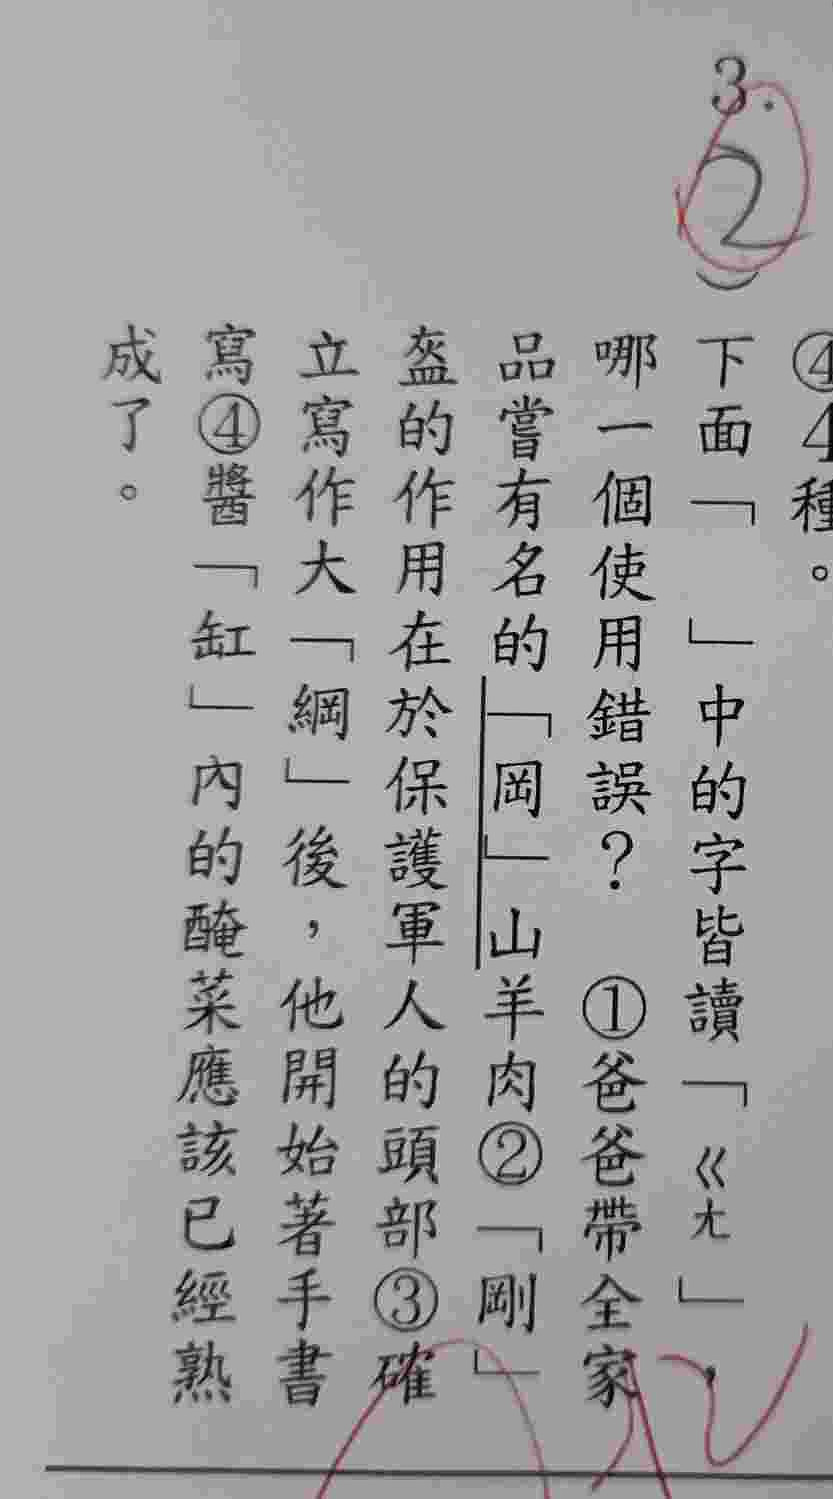 ④4種。
3.
2
下面「　」中的字皆讀「ㄍㄤ」，
哪一個使用錯誤？　①爸爸帶全家
品嘗有名的「岡」山羊肉②「剛」
盔的作用在於保護軍人的頭部③確
立寫作大「綱」後，他開始著手書
寫④醬「缸」內的醃菜應該已經熟
成了。